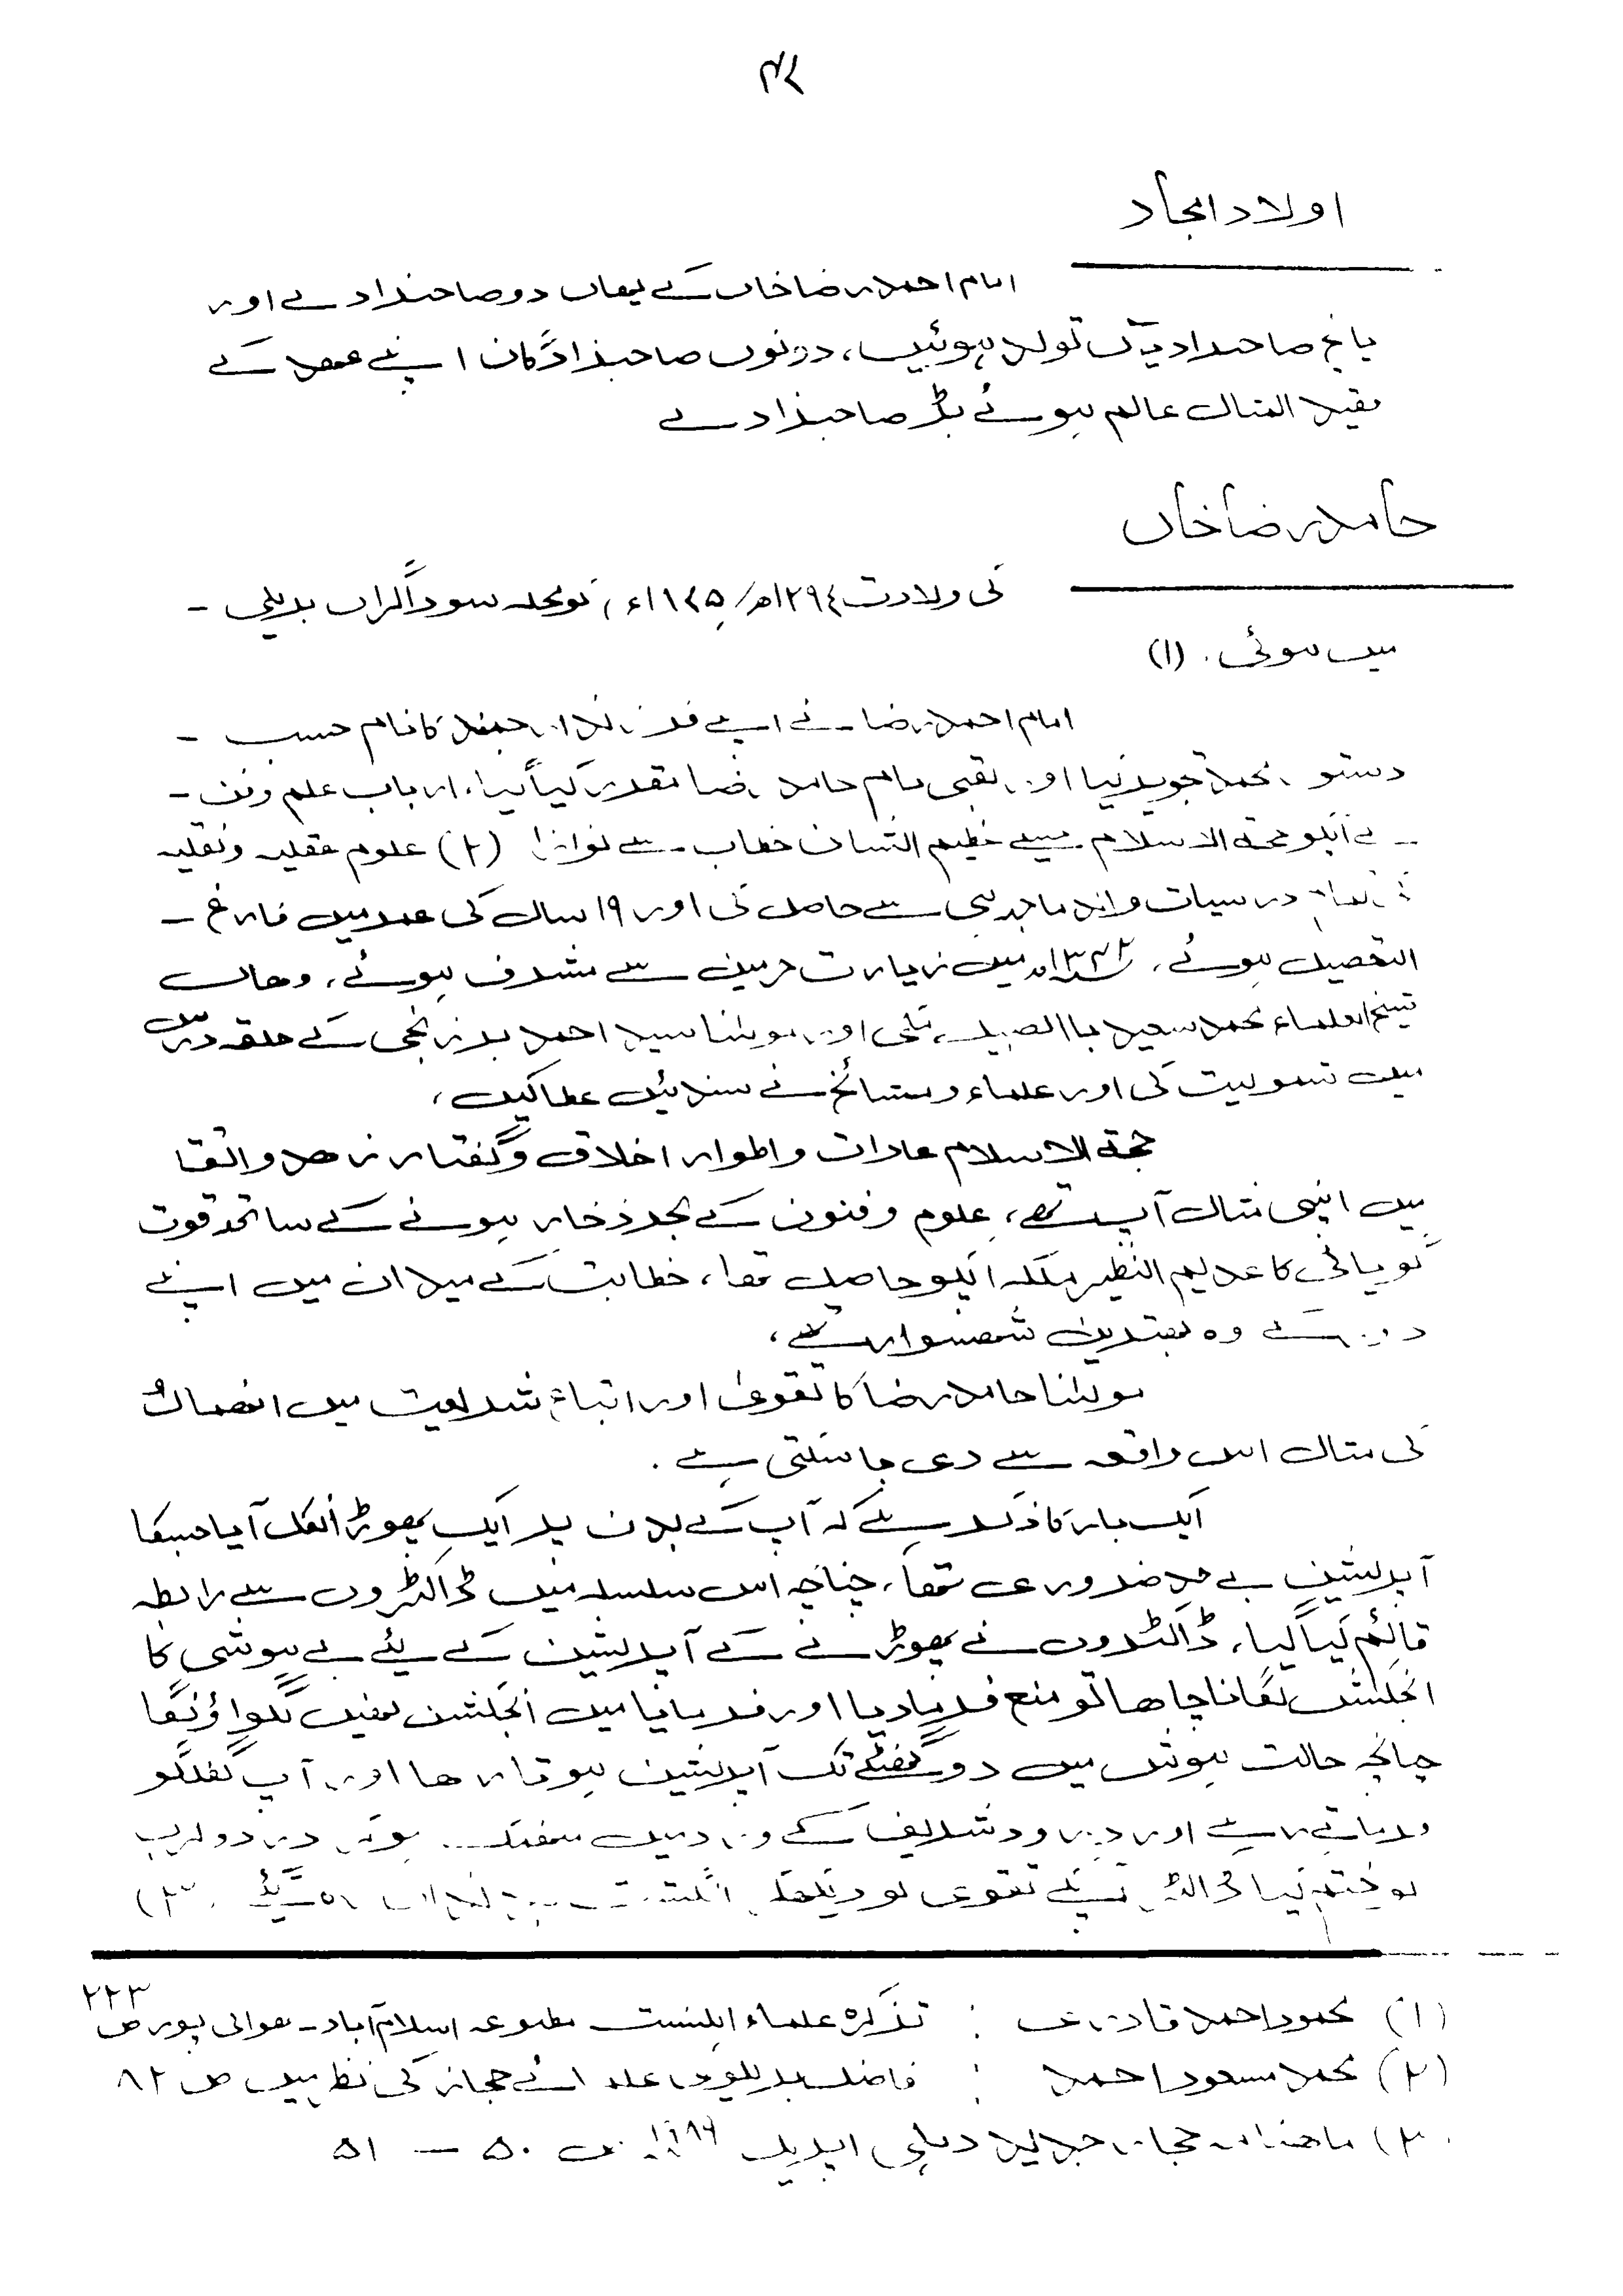 ۴۲
اولاد امجاد
امام احمد رضا خاں کے یہاں دو صاحبزادے اور
پانچ صاحبزادیاں تولد ہوئیں، دونوں صاحبزادگان اپنے عہد کے
فقید المثال عالم ہوئے بڑے صاحبزادے
حامد رضا خاں
کی ولادت ۱۲۹۲ھ/۱۸۷۵ء، محلہ سوداگراں بریلی -
میں ہوئی. (۱)
امام احمد رضا نے اپنے فرزند ارجمند کا نام حسب -
دستور محمد تجویز کیا اور لقبی نام حامد رضا مقرر کیا گیا، ارباب علم و فن -
نے آپکو حجۃ الاسلام جیسے عظیم الشان خطاب سے نوازا (۲) علوم عقلیہ و نقلیہ
درسیات والد ماجد ہی سے حاصل کی اور ۱۹ سال کی عمر میں فارغ -
التحصیل ہوئے، میں زیارت حرمین سے مشرف ہوئے، وہاں
شیخ العلماء محمد سعید باالصیل مکی اور مولٰنا سید احمد برزنجی کے حلقہ درس
میں شمولیت کی اور علماء و مشائخ نے سندیں عطا کیں،
حجۃ الاسلام عادات و اطوار اخلاق و گفتار زہد و اتقا
میں اپنی مثال آپ تھے، علوم و فنون کے بحر ذخار ہونے کے ساتھ قوت
گویائی کا عدیم النظیر ملکہ آپکو حاصل تھا، خطابت کے میدان میں اپنے
دور کے وہ بہترین شہسوار تھے،
مولٰنا حامد رضا کا تقویٰ اور اتباع شریعت میں انہماک
کی مثال اس واقعہ سے دی جا سکتی ہے.
ایک بار کا ذکر ہے کہ آپ کے بدن پر ایک پھوڑا نکل آیا جسکا
آپریشن بے حد ضروری تھا، چنانچہ اس سلسلہ میں ڈاکٹروں سے رابطہ
قائم کیا گیا، ڈاکٹروں نے پھوڑے کے آپریشن کے لئے بے ہوشی کا
انجکشن لگانا چاہا تو منع فرما دیا اور فرمایا میں انجکشن نہیں لگواؤنگا
چنانچہ حالت ہوش میں دو گھنٹے تک آپریشن ہوتا رہا اور آپ گفتگو
فرماتے رہے اور درود شریف کے ورد میں درد و کرب
کو ختم کیا ڈاکٹر آپکے تقوی کو دیکھکر انگشت بدنداں رہ گئے (۳)
(۱) محمود احمد قادری : تذکرہ علماء اہلسنت مطبوعہ اسلام آباد- بھوانی پور ص ۲۲۳
(۲) محمد مسعود احمد : فاضل بریلوی علمائے حجاز کی نظر میں ص ۸۲
(۳) ماہنامہ حجاز جدید دہلی اپریل ص ۵۰ - ۵۱